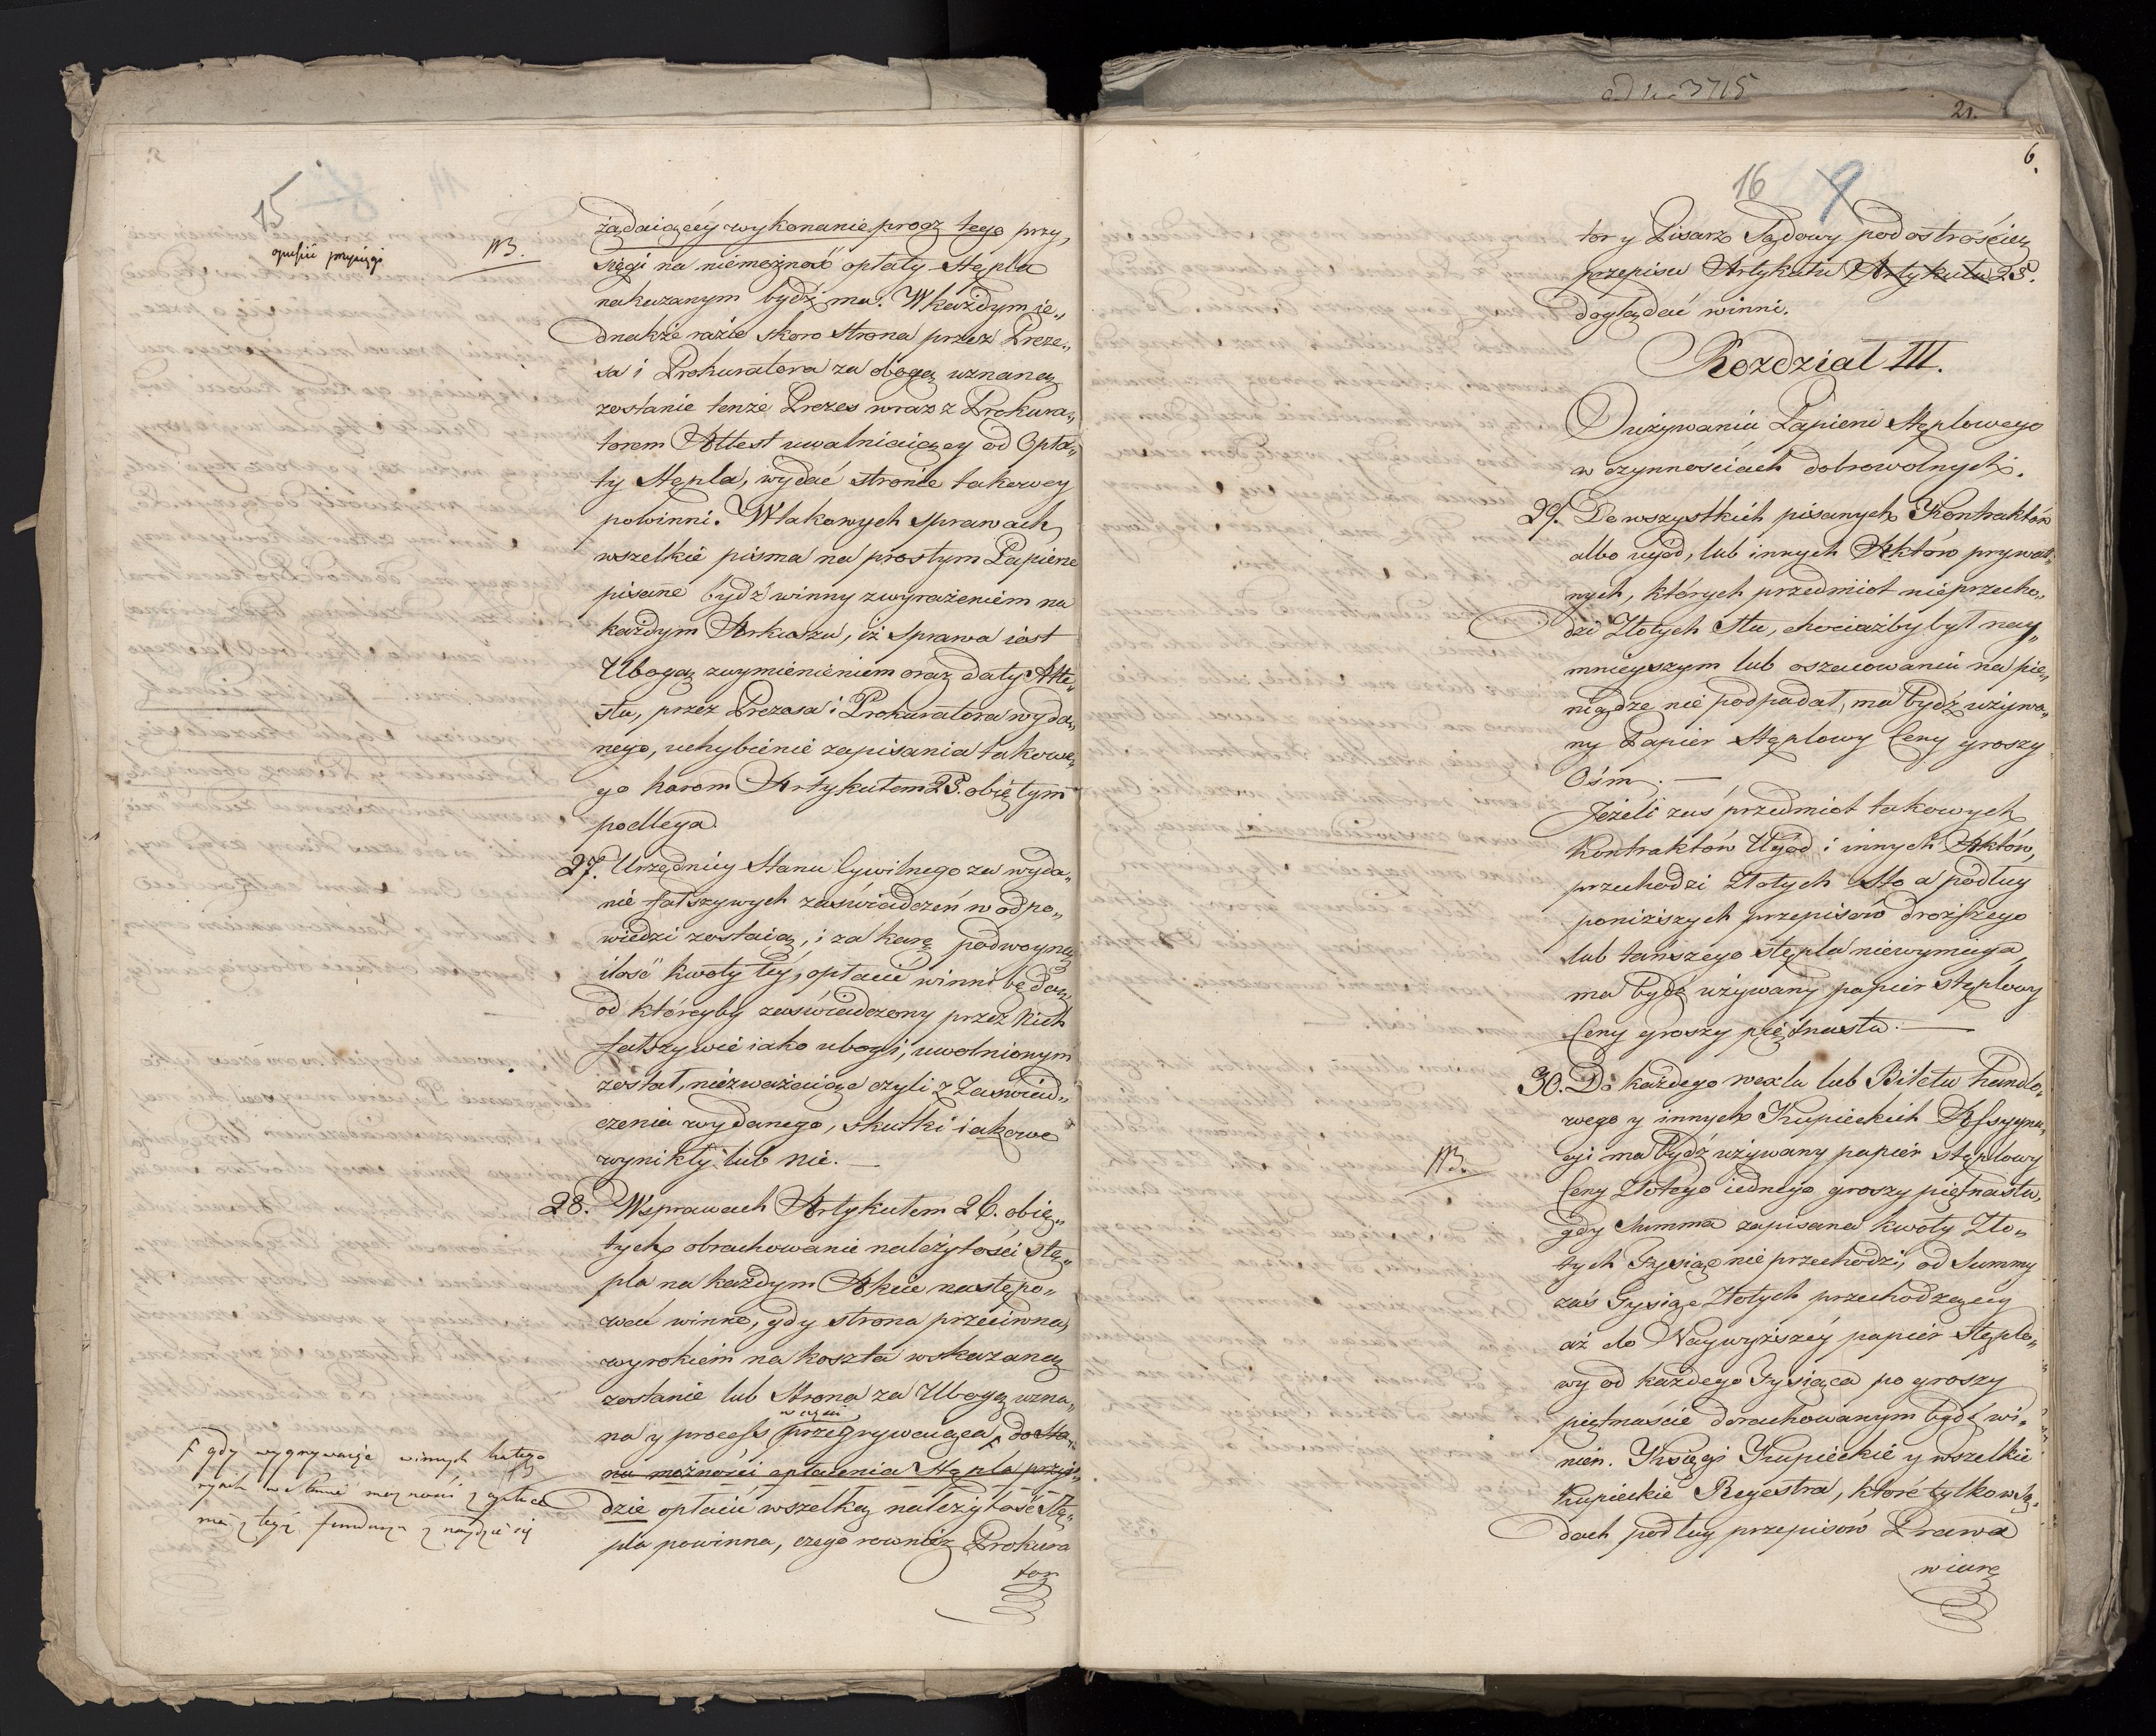 15
opuścić przysięgi
NB.
żądaiącéy wykonanie procz tego przy„
sięgi na niémożność opłaty Stępla
nakazanym bydź ma. W każdym ie„
dnakże razie skoro strona przez Preze„
sa i Prokuratora za ubogą uznaną
zostanie tenże Prezes wraz z Prokura„
torem Attest uwalniaiący od Opła„
ty Stępla, wydać stronie takowey
powinni. W takowych sprawach
wszelkie pisma na prostym Papierze
pisane bydź winny z wyrażeniem na
każdym Arkuszu, iż sprawa iest
Ubogą z wymienieniem oraz daty Atte„
stu, przez Prezesa i Prokuratora wyda„
nego, uchybienie zapisania takowe„
go karom Artykułem 25. obiętym
podlega.
27. Urzędnicy Stanu Cywilnego za wyda„
nie fałszywych zaświadczeń w odpo„
wiedzi zostaią, i za karę podwoyną
ilość kwoty téy, opłacić winni będą,
od któreyby zaświadczony przez nich
fałszywie iako ubogi, uwolnionym
został, niezważaiąc czyli z Zaświad„
czenia wydanego, skutki iakowe
wynikły lub nie. —
28. W sprawach Artykułem 26. obię„
tych obrachowanie należytości stę„
pla na każdym Akcie następo„
wać winno, gdy strona przeciwna,
wyrokiem na koszta wskazaną
zostanie lub Strona za Ubogą uzna„
w części
na y process przegrywaiąca, do sta„
nu możności opłacenia Stępla przyi„
dzie opłacić wszelką należytość Stę„
pla powinna, czego rownież Prokura
tor
F gdy wygrywaiąc winnych
w stanie możności
ma z tego funduszu znaydzie się
ad Nr 3715
21.
6.
16 9
tor y Pisarz Sądowy pod ostrością
przepisu Artykułu Artykułu 25.
doglądać winni.
Rozdział III.
O używaniu Papieru Stęplowego
w czynnościach dobrowolnych.
29. Do wszystkich pisanych Kontraktów
albo ugód, lub innych Aktów prywat„
nych, których przedmiot nie przecho„
dzi Złotych Stu, chociażby był nay„
mnieyszym lub oszacowaniu na pie„
niądze nie podpadał, ma bydź używa„
ny Papier Stęplowy Ceny groszy
Ośm. —
Jeżeli zaś przedmiot takowych
Kontraktów Ugod i innych Aktów,
przechodzi Złotych Sto a podług
poniższych przepisów droższego
lub tańszego stępla niewymaga
ma bydź używany papier stęplowy
Ceny groszy piętnastu. —
30. Do każdego wexlu lub Biletu handlo„
wego y innych Kupieckich Assygna„
NB.
cyi ma bydź używany papier stęplowy
Ceny Złotego iednego groszy piętnastu,
gdy Summa zapisana kwoty Zło„
tych Tysiąc nie przechodzi, od Summy
zaś Tysiąc Złotych przechodzącey
aż do Naywyższéy papiér stęplo„
wy od każdego Tysiąca po groszy
piętnaście dorachowanym bydź wi„
nien. Księgi Kupieckie y wszelkie
Kupieckie Reyestra, które tylko w Są„
dach podług przepisów Prawa
wiarę